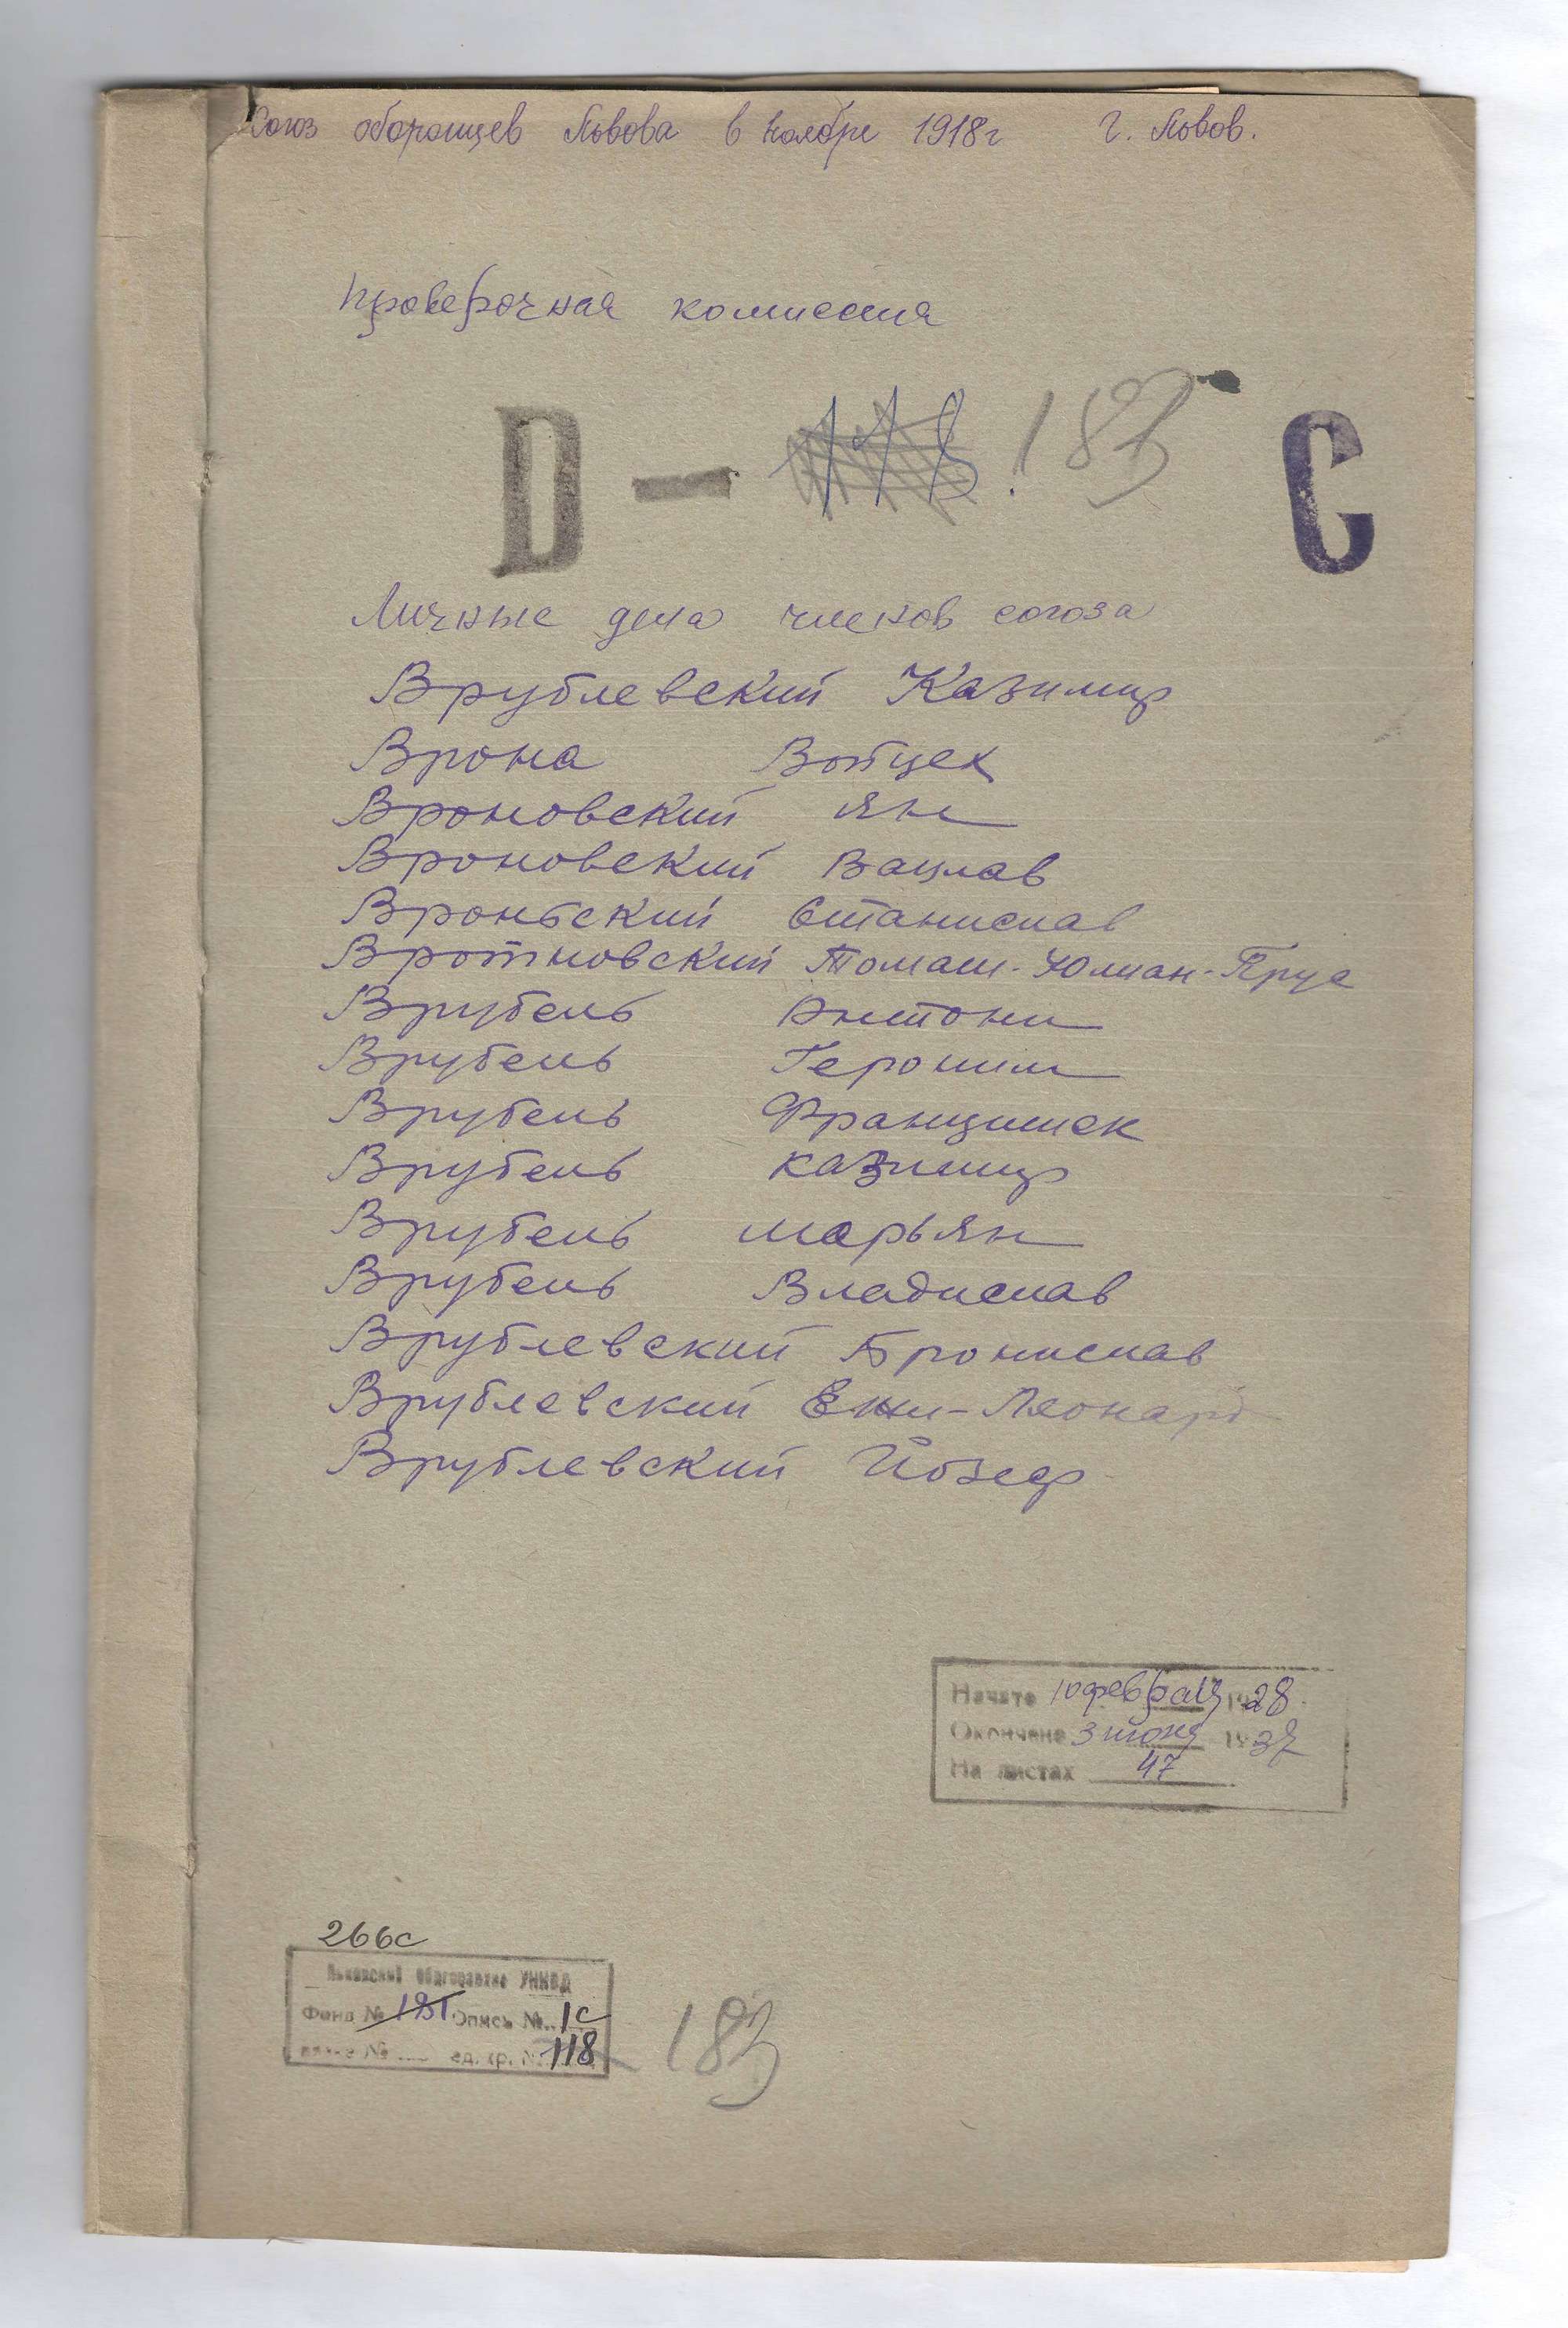 Союз оборонцев Львова в ноябре 1918г г. Львов.
Проверочная комиссия
D — 118. 183 C
Личные дела членов союза
Врублевский Казимир
Врона Войцех
Вроновский Ян
Вроновский Вацлав
Вроньский Станислав
Вротновский Томаш-Юлиан-Прус
Врубель Антони
Врубель Героним
Врубель Францишек
Врубель Казимир
Врубель Марьян
Врубель Владислав
Врублевский Бронислав
Врублевский Ежи-Леонард
Врублевский Йозеф
Начато 10 февраля 1928
Окончено 3 июня 1937
На листах 47
266с
Львовский Облгорархив УНКВД
Фонд № Опись № 1с
№ ед. хр. № 118 183